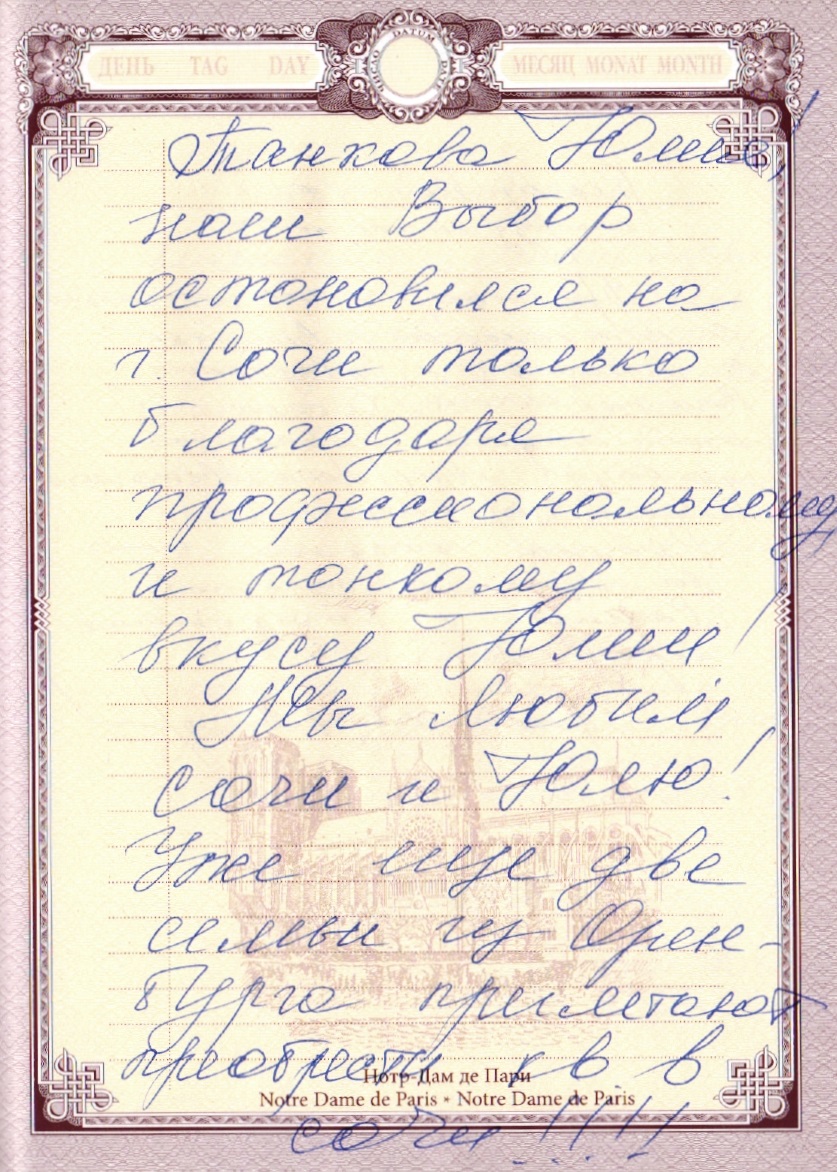 ДЕНЬ TAG DAY DATUM МЕСЯЦ MONAT MONTH
Танкова Юлия!
наш Выбор
остановился на
г. Сочи только
благодаря
профессиональному
и тонкому
вкусу Юлии!
Мы любим
Сочи и Юлю!
Уже еще две
семьи из Орен-
бурга прилетают
преобрести кв в
Нотр-Дам де Пари
Notre Dame de Paris * Notre Dame de Paris
сочи!!!!